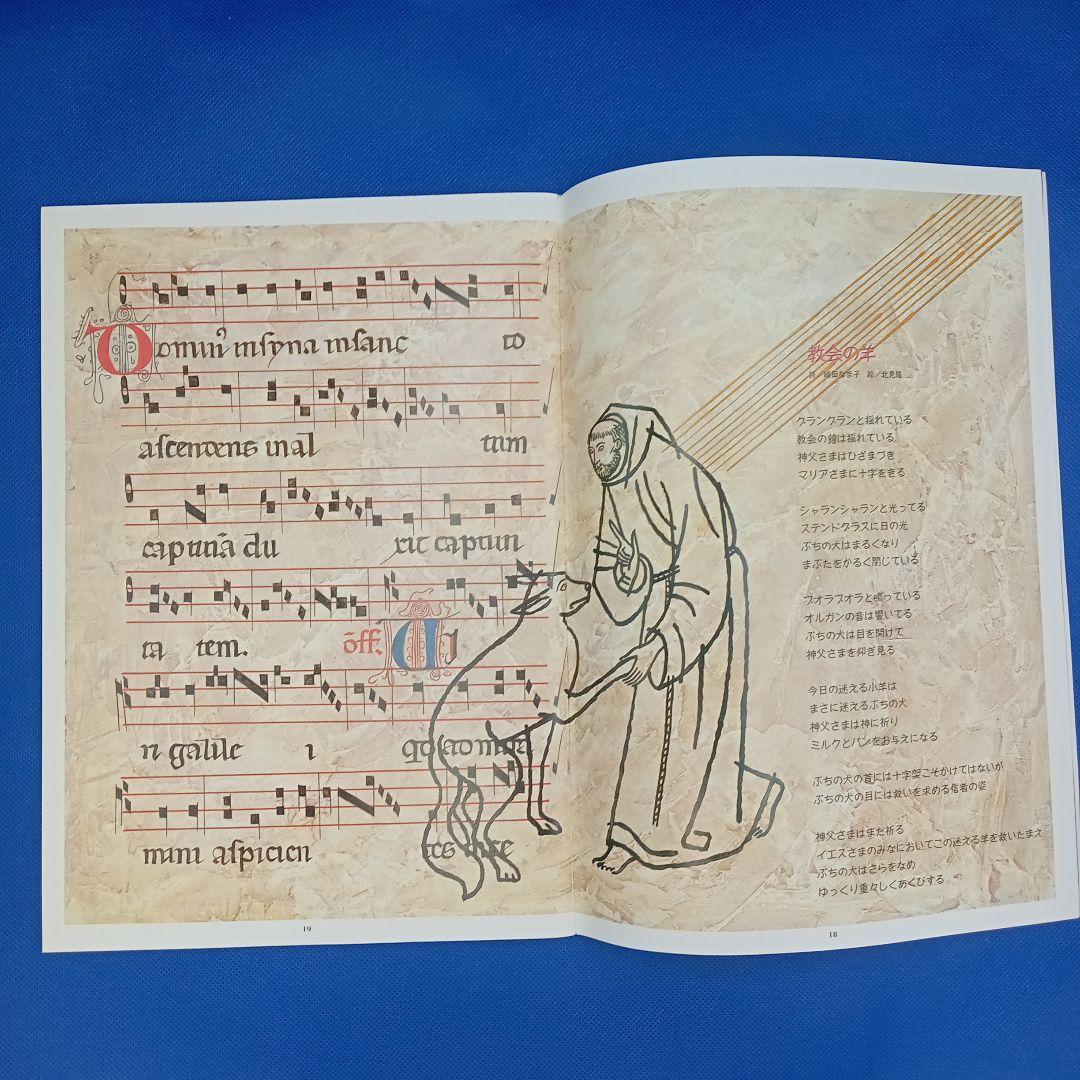 教会の羊
詩/ 絵/北見隆
クランクランと揺れている
教会の鐘は揺れている
神父さまはひざまづき
マリアさまに十字をきる
シャランシャランと光ってる
ステンドグラスに日の光
ぶちの犬はまるくなり
まぶたをかるく閉じている
ブオラブオラと鳴っている
オルガンの音は響いてる
ぶちの犬は目を開けて
神父さまを仰ぎ見る
今日の迷える小羊は
まさに迷えるぶちの犬
神父さまは神に祈り
ミルクとパンをお与えになる
ぶちの犬の首には十字架こそかけてはないが
ぶちの犬の目には救いを求める信者の姿
神父さまはまた祈る
イエスさまのみなにおいてこの迷える羊を救いたまえ
ぶちの犬はさらをなめ
ゆっくり重々しくあくびする
18
Domin insyna insanc to
ascendens in al tum
captiuã du xit captiui
ta tem. õff.
n galile i
mani aspicien tes
19